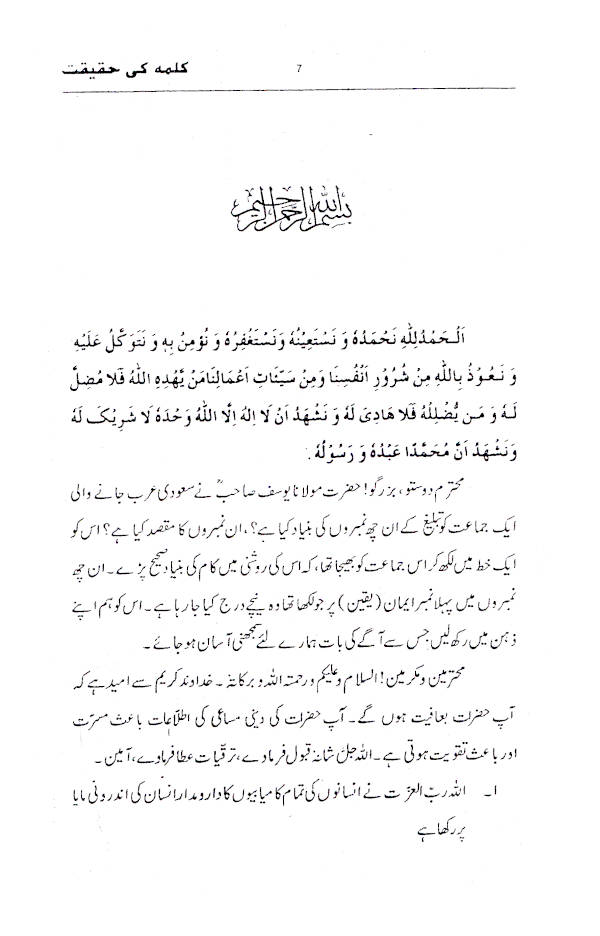 کلمہ کی حقیقت 7
بسم اللہ الرحمن الرحیم
اَلْحَمْدُلِلّٰهِ نَحْمَدُهٗ وَ نَسْتَعِيْنُهٗ وَنَسْتَغْفِرُهٗ وَ نُؤْمِنُ بِهٖ وَ نَتَوَكَّلُ عَلَيْهِ
وَ نَعُوْذُ بِاللّٰهِ مِنْ شُرُوْرِ اَنْفُسِنَا وَمِنْ سَيِّئَاتِ اَعْمَالِنَا مَنْ يَّهْدِهِ اللّٰهُ فَلَا مُضِلَّ
لَهٗ وَ مَنْ يُّضْلِلْهُ فَلَا هَادِىَ لَهٗ وَ نَشْهَدُ اَنْ لَا اِلٰهَ اِلَّا اللّٰهُ وَحْدَهٗ لَا شَرِيْكَ لَهٗ
وَنَشْهَدُ اَنَّ مُحَمَّدًا عَبْدُهٗ وَ رَسُوْلُهٗ .
محترم دوستو، بزرگو! حضرت مولانا یوسف صاحبؒ نے سعودی عرب جانے والی
ایک جماعت کو تبلیغ کے ان چھ نمبروں کی بنیاد کیا ہے؟، ان نمبروں کا مقصد کیا ہے؟ اس کو
ایک خط میں لکھ کر اس جماعت کو بھیجا تھا، کہ اس کی روشنی میں کام کی بنیاد صحیح پڑے۔ ان چھ
نمبروں میں پہلا نمبر ایمان (یقین) پر جو لکھا تھا وہ نیچے درج کیا جا رہا ہے۔ اس کو ہم اپنے
ذہن میں رکھ لیں جس سے آگے کی بات ہمارے لئے سمجھنی آسان ہو جائے۔
محترمین و مکرمین! السلام و علیکم و رحمتہ اللہ و برکاتہٗ۔ خداوند کریم سے امید ہے کہ
آپ حضرات بعافیت ہوں گے۔ آپ حضرات کی دینی مساعی کی اطلاعات باعث مسرّت
اور باعث تقویت ہوتی ہے۔ اللہ جلّ شانہٗ قبول فرمادے، ترقیات عطا فرمادے، آمین۔
۱۔ اللہ ربّ العزّت نے انسانوں کی تمام کامیابیوں کا دارومدار انسان کی اندرونی مایا
پر رکھا ہے